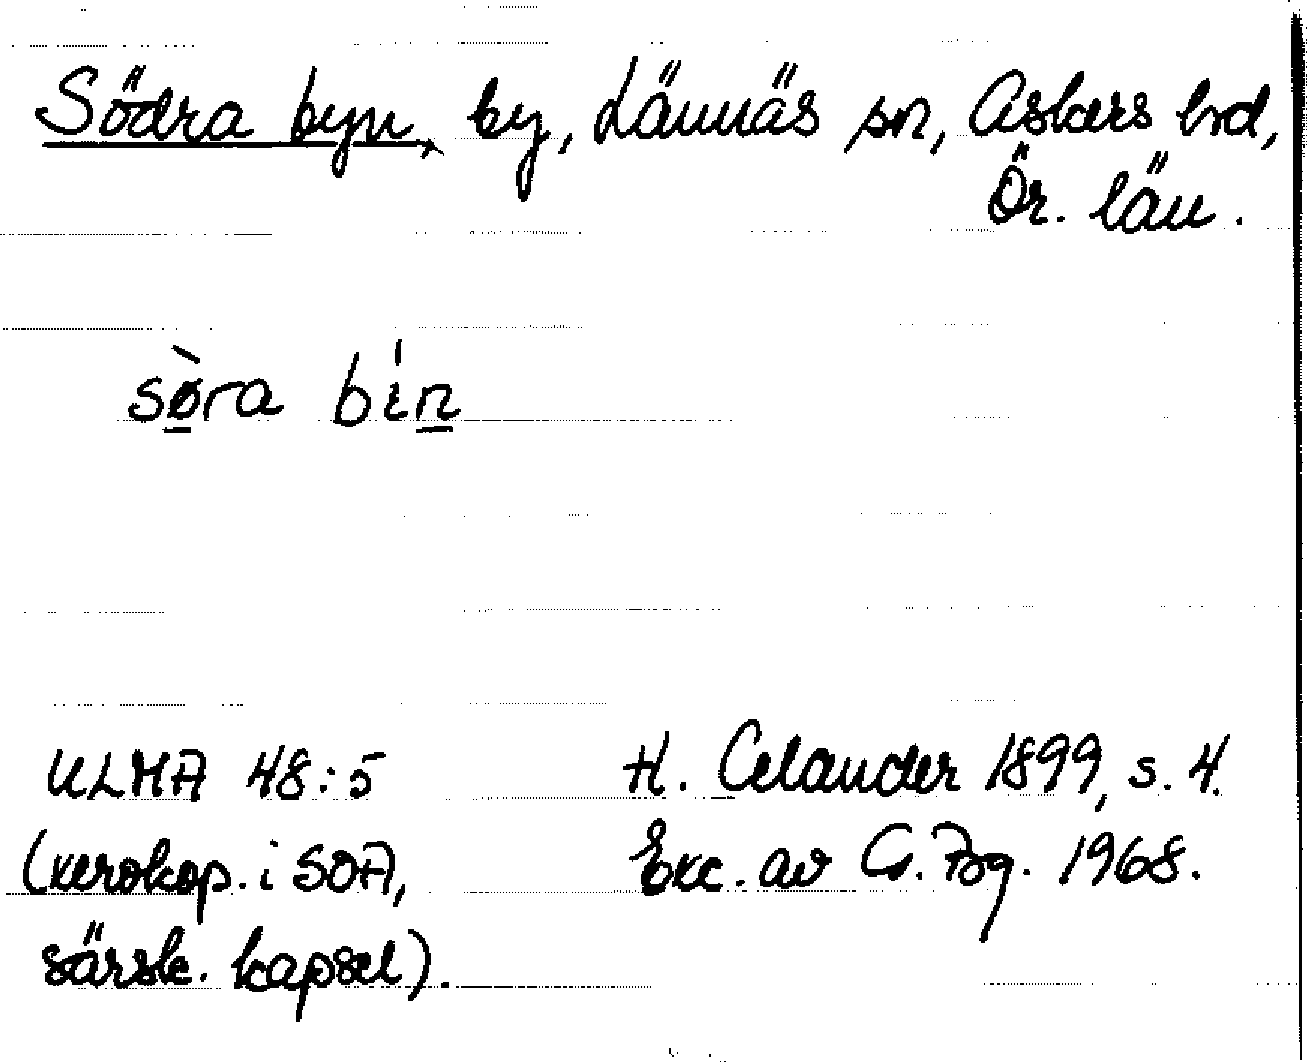 Södra byn, by, Lännäs sn, Askers hd,
Ör. län.
sø̀ra bín
ULMA 48:5
(xerokop. i SOA,
särsk. kapsel).
H. Celander 1899, s. 4.
Exc. av G. 1968.